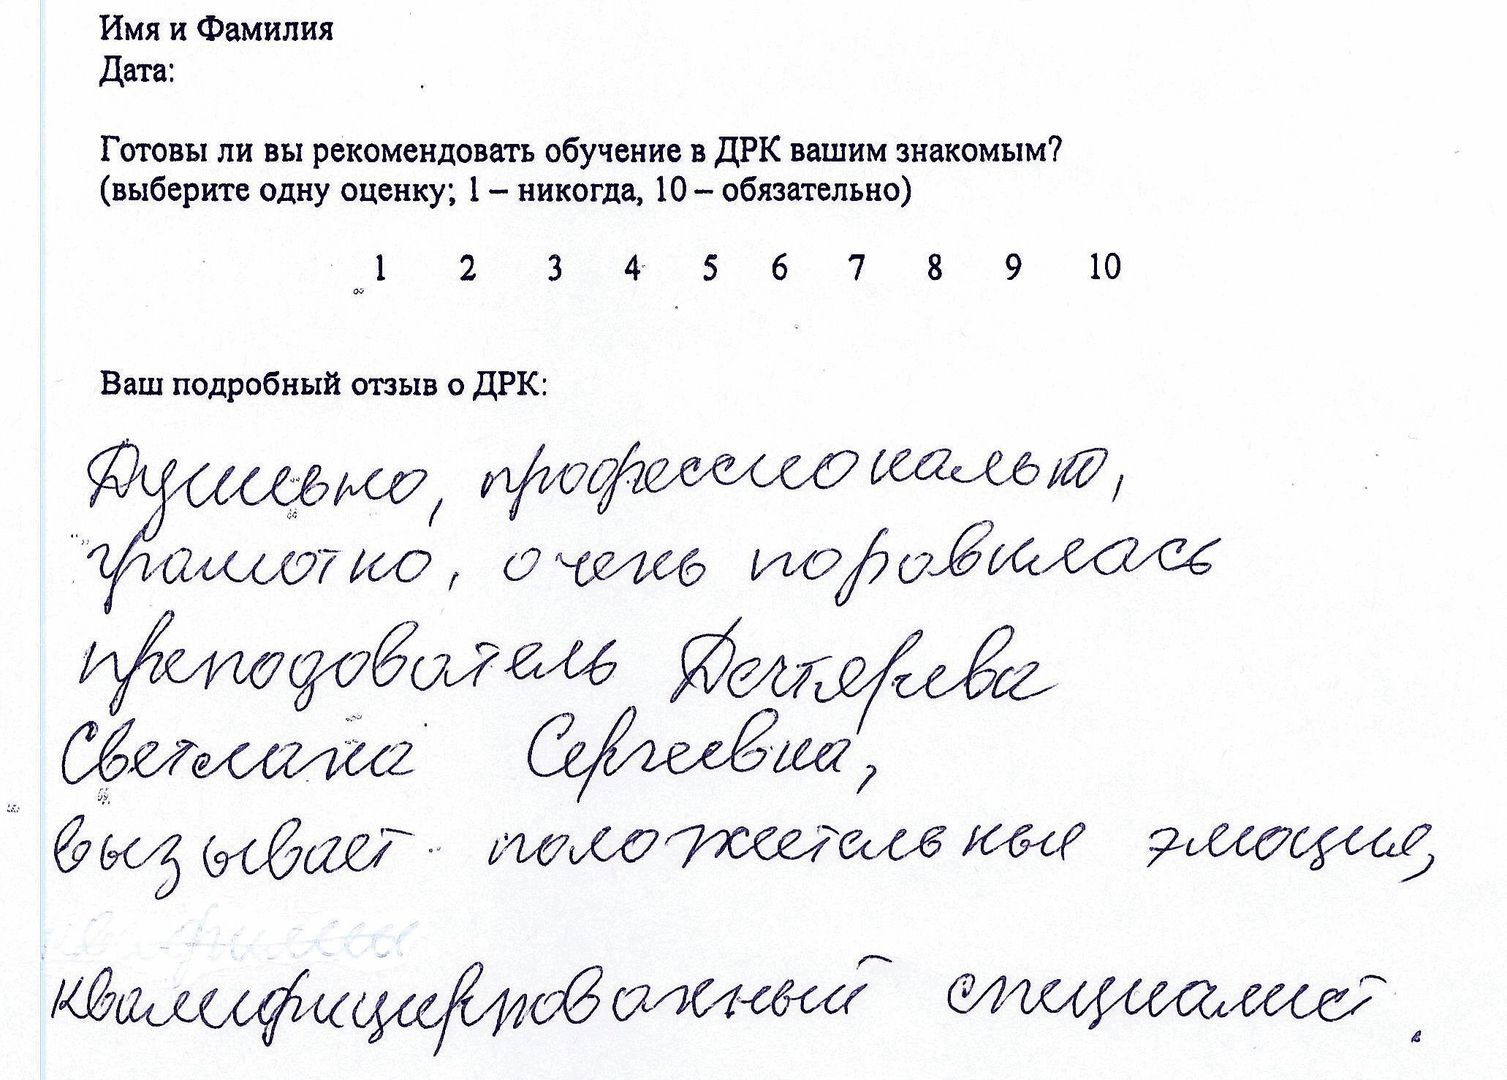 Имя и Фамилия
Дата:
Готовы ли вы рекомендовать обучение в ДРК вашим знакомым?
(выберите одну оценку; 1 – никогда, 10 – обязательно)
1 2 3 4 5 6 7 8 9 10
Ваш подробный отзыв о ДРК:
Душевно, профессионально,
грамотно, очень поровилась
преподователь Дечтярева
Светлана Сергеевна,
вызывает положительные эмоции,
квалифицированный специалист.